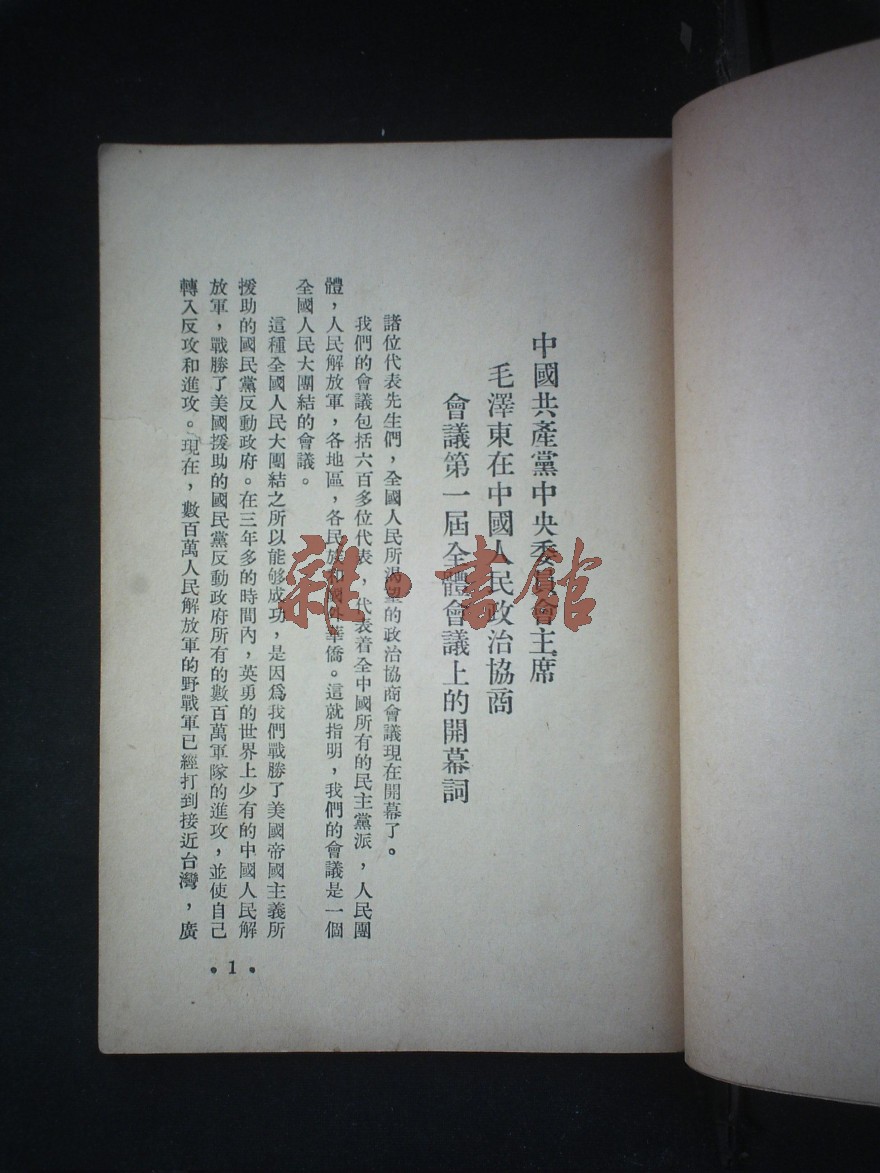 中國共產黨中央委員會主席
毛澤東在中國人民政治協商
會議第一屆全體會議上的開幕詞
諸位代表先生們，全國人民所渴望的政治協商會議現在開幕了。
我們的會議包括六百多位代表，代表着全中國所有的民主黨派，人民團
體，人民解放軍，各地區，各民族和國外華僑。這就指明，我們的會議是一個
全國人民大團結的會議。
這種全國人民大團結之所以能够成功，是因爲我們戰勝了美國帝國主義所
援助的國民黨反動政府。在三年多的時間內，英勇的世界上少有的中國人民解
放軍，戰勝了美國援助的國民黨反動政府所有的數百萬軍隊的進攻，並使自己
轉入反攻和進攻。現在，數百萬人民解放軍的野戰軍已經打到接近台灣，廣
•1•
雜·書館